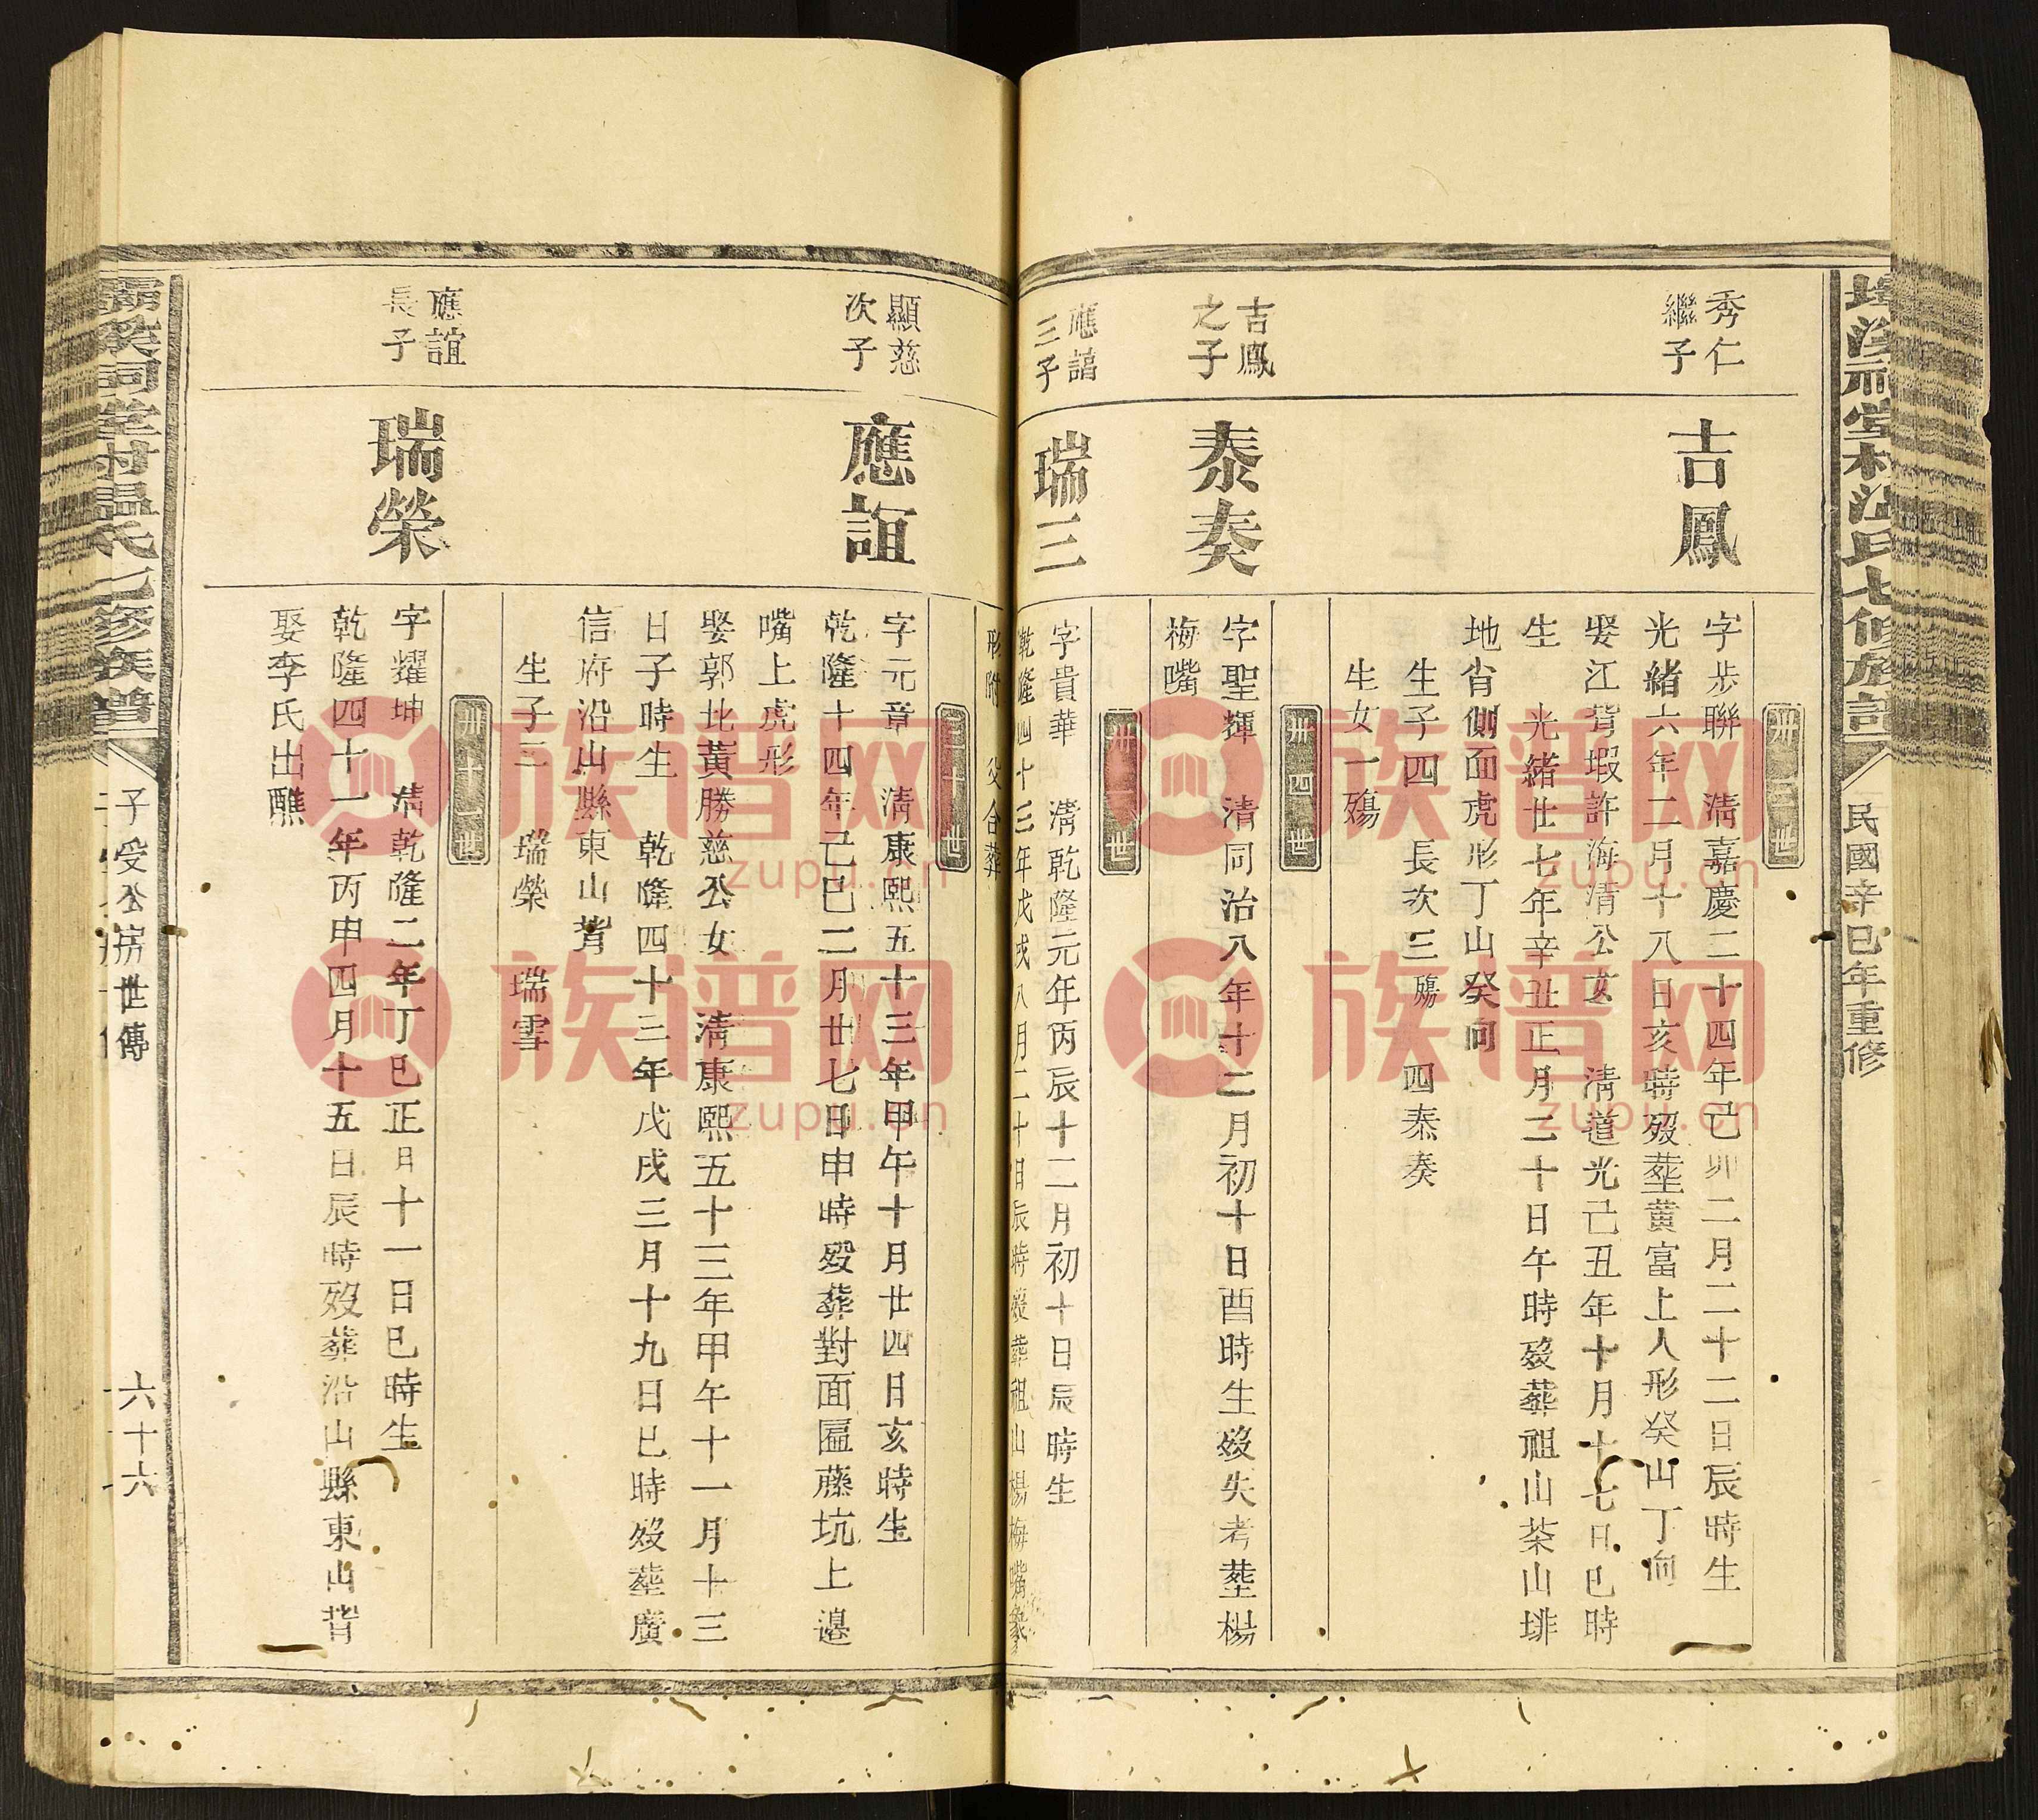 民國辛巳年重修
卅三世
秀仁
繼子
吉鳳
字步聯　清嘉慶二十四年己卯二月二十二日辰時生
光緒六年二月十八日亥時歿塟黄富上人形癸山丁向
娶江背塅許海清公女　清道光己丑年十月十七日巳時
生　光緒廿七年辛丑正月二十日午時歿葬祖山茶山排
地省側面虎形丁山癸向
生子四　長次三殤　四泰奏
生女一殤
卅四世
吉鳳
之子
泰奏
字聖輝　清同治八年十二月初十日酉時生歿失考塟楊
梅嘴
世
三子
瑞三
字貴華　清乾隆元年丙辰十二月初十日辰時生
乾隆四十三年戊戌八月二十日辰時歿葬祖山楊梅嘴象
形附　父合葬
三十世
顯慈
次子
應誼
字元章　清康熙五十三年甲午十月廿四日亥時生
乾隆十四年己巳二月廿七日申時歿葬對面匾藤坑上邊
嘴上虎形
娶郭北黃勝慈公女　清康熙五十三年甲午十一月十三
日子時生　乾隆四十三年戊戌三月十九日巳時歿塟廣
信府沿山縣東山背
生子二　瑞榮　瑞雪
卅十一世
應誼
長子
瑞榮
字耀坤　清乾隆二年丁巳正月十一日巳時生
乾隆四十一年丙申四月十五日辰時歿葬沿山縣東山背
娶李氏出醮
祠堂村溫氏七修族譜
子受公房世傳
六十六
族谱网
zupu.cn
族谱网
zupu.cn
族谱网
zupu.cn
族谱网
zupu.cn